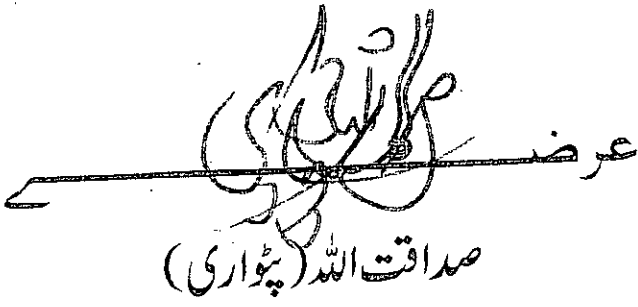 عرضے
صداقت اللہ (پٹواری)